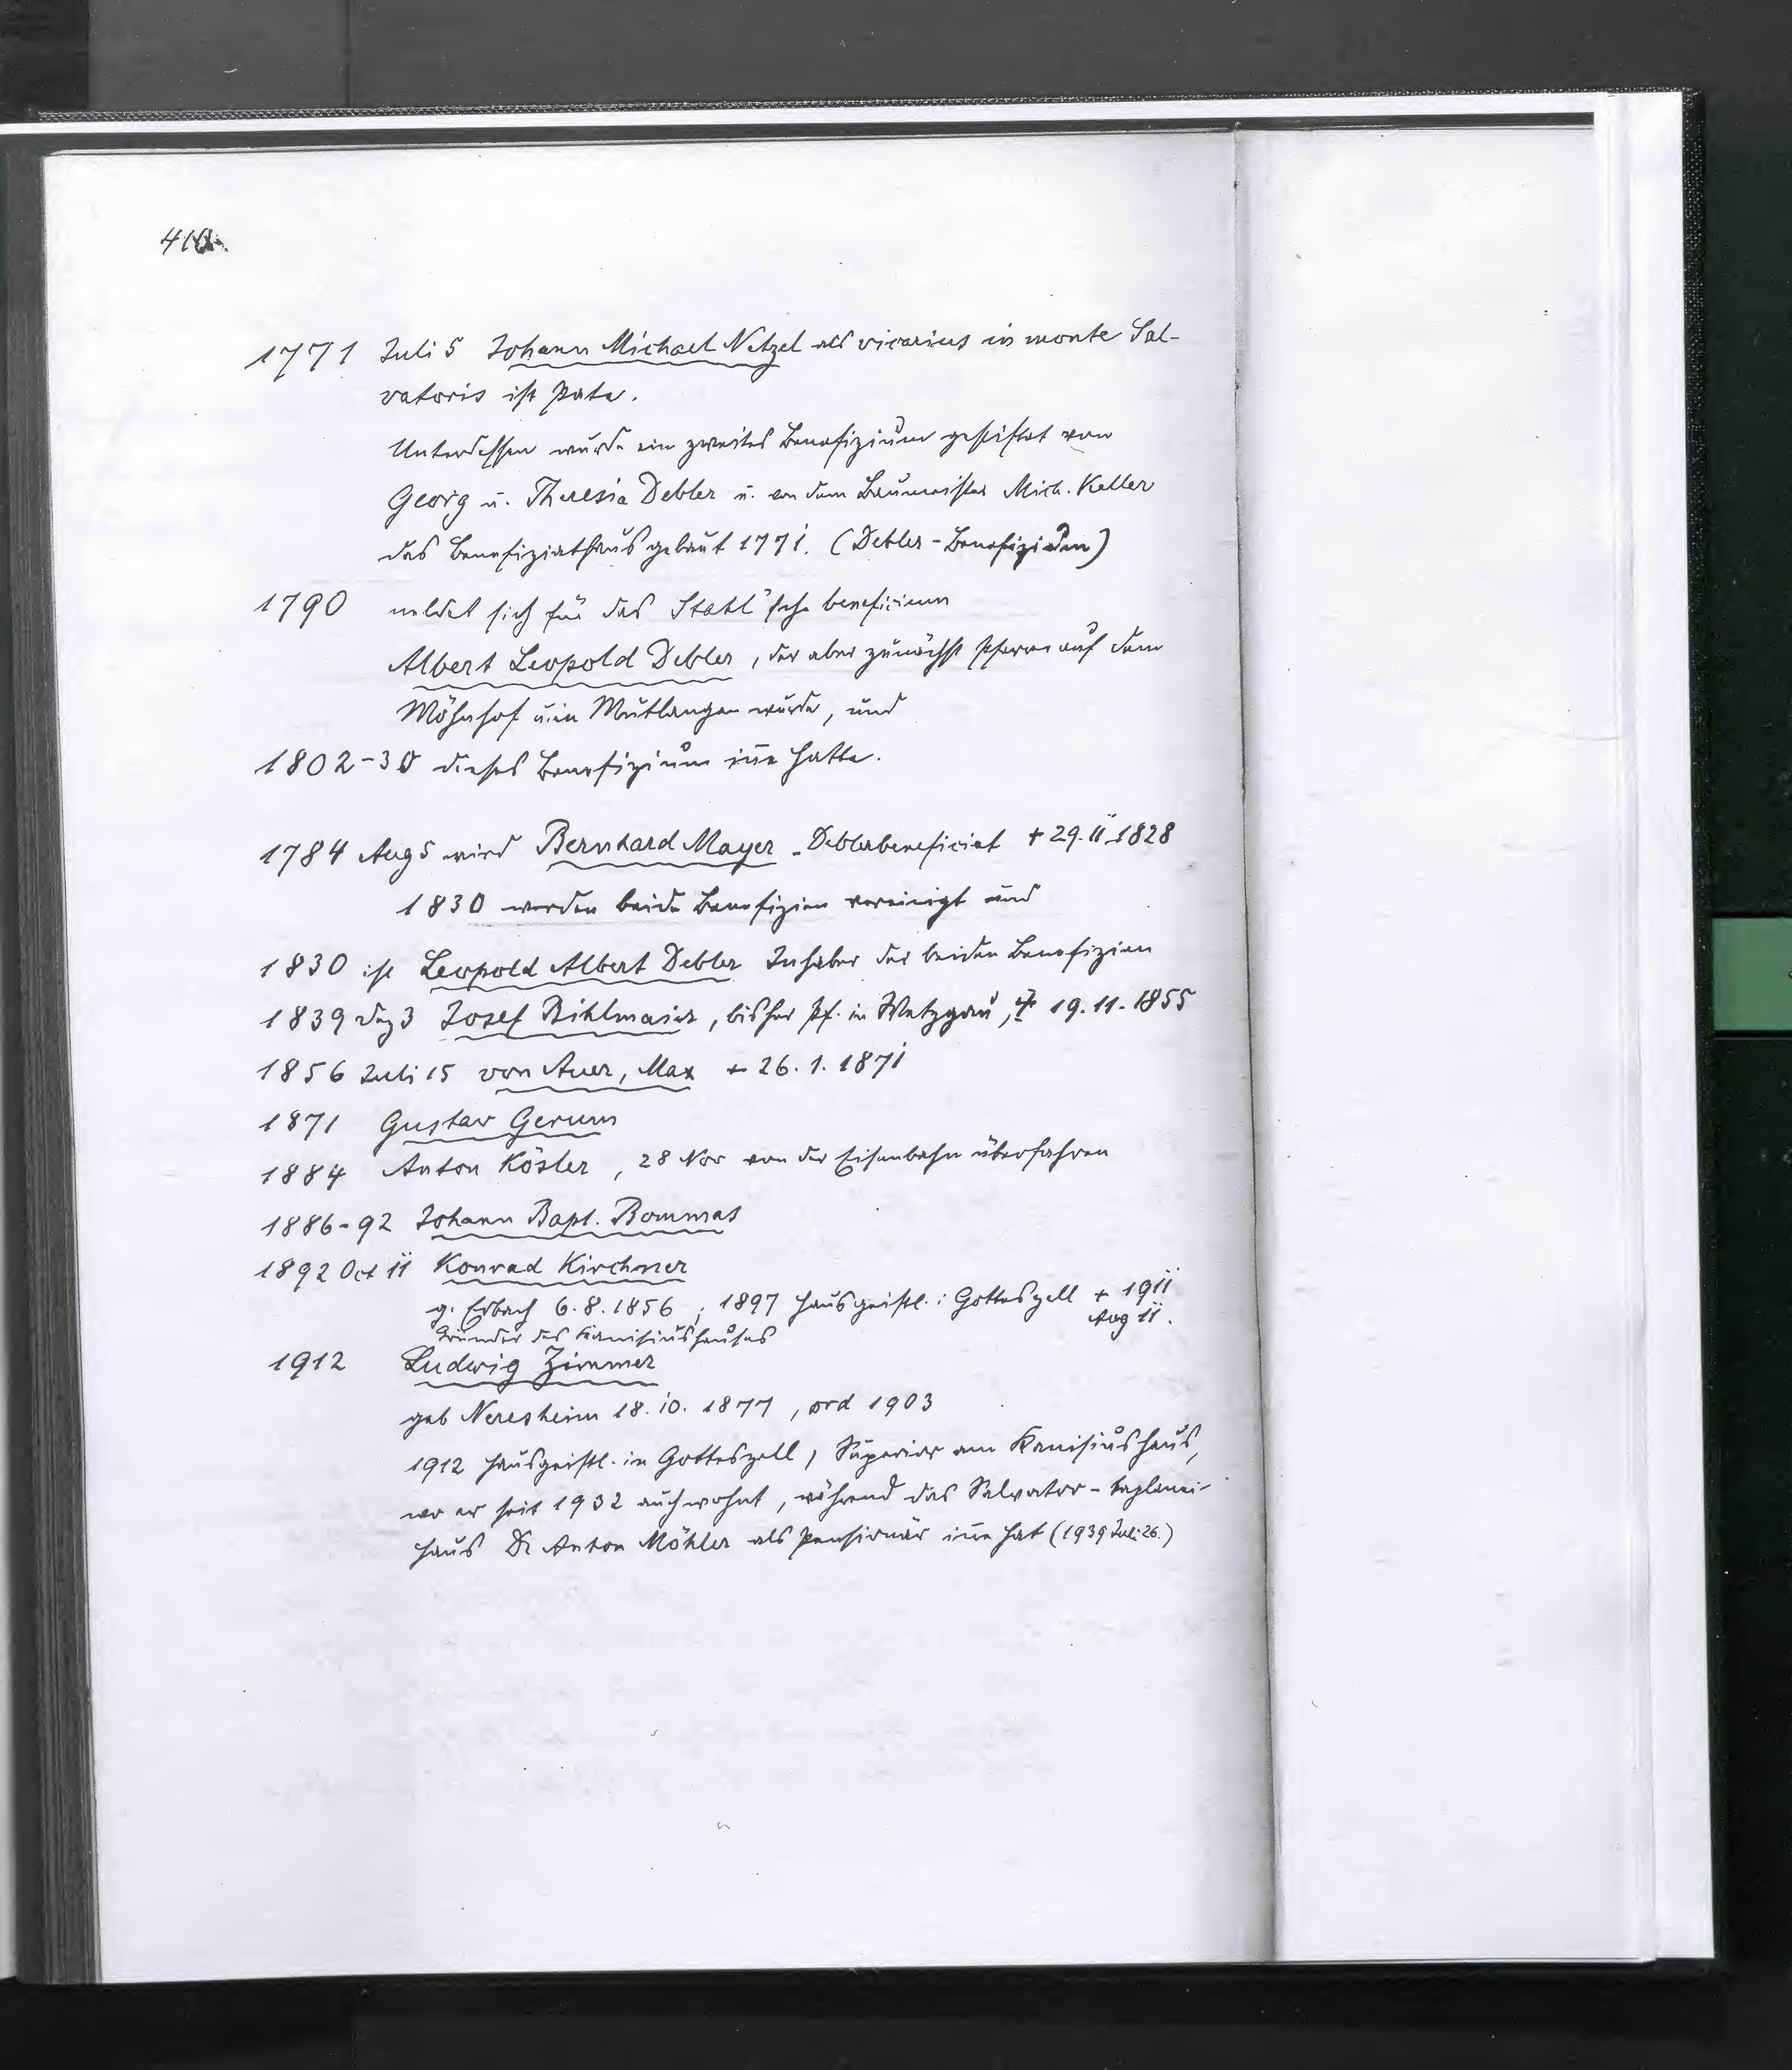 410
1771 Juli 5 Johann Michael Netzel als vicarius in monte Sal-
vatoris ist Pate.
Unterdessen wurde ein zweites Benefizium gestiftet von
Georg u. Theresia Debler u. von dem Baumeister Mich. Keller
das Benefiziathaus gebaut 1771. (Debler-Benefizium)
1790 meldet sich für das Stahl'sche beneficium
Albert Leopold Debler, der aber zunächst Pfarrer auf dem
Möhnhof u. in Mutlangen wurde, und
1802-30 dieses Benefizium inne hatte.
1784 Aug 5 wird Bernhard Mayer Deblerbeneficiat + 29. II 1828
1830 werden beide Benefizien vereinigt und
1830 ist Leopold Albert Debler Inhaber der beiden Benefizien
1839 Dez 3 Josef Bihlmaier, bisher Pf. in Wetzgau, + 19.11.1855
1856 Juli 15 von Auer, Max + 26. 1. 1871
1871 Gustav Gerum
1884 Anton Kösler, 28 Nov von der Eisenbahn überfahren
1886-92 Johann Bapt. Bommas
1892 Oct 11 Konrad Kirchner
g. Erbach 6.8.1856 ; 1897 Hausgeistl. i Gotteszell + 1911
Aug 11.
Gründer des Kanisiushauses
1912 Ludwig Zimmer
geb Neresheim 18.10.1877, ord 1903
1912 Hausgeistl. in Gotteszell, Superior am Kanisiushaus,
wo er seit 1932 auch wohnt, während das Salvator-Kaplanei-
haus Dr Anton Möhler als Pensionär inne hat (1939 Juli 26.)